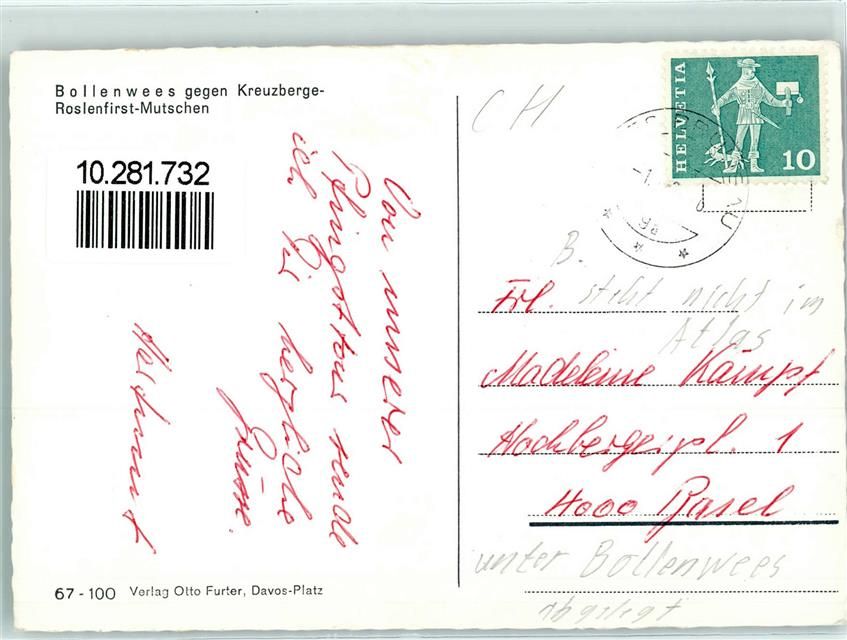 Bollenwees gegen Kreuzberge-
Roslenfirst-Mutschen
10.281.732
Von unserer
Pfingsttour sende
ich Dir herzliche
Grüsse.
67-100 Verlag Otto Furter, Davos-Platz
CH
HELVETIA
10
B.
steht nicht im
Atlas
Frl.
Madeleine Kämpf
Hochbergerpl. 1
4000 Basel
unter Bollenwees
abgelegt